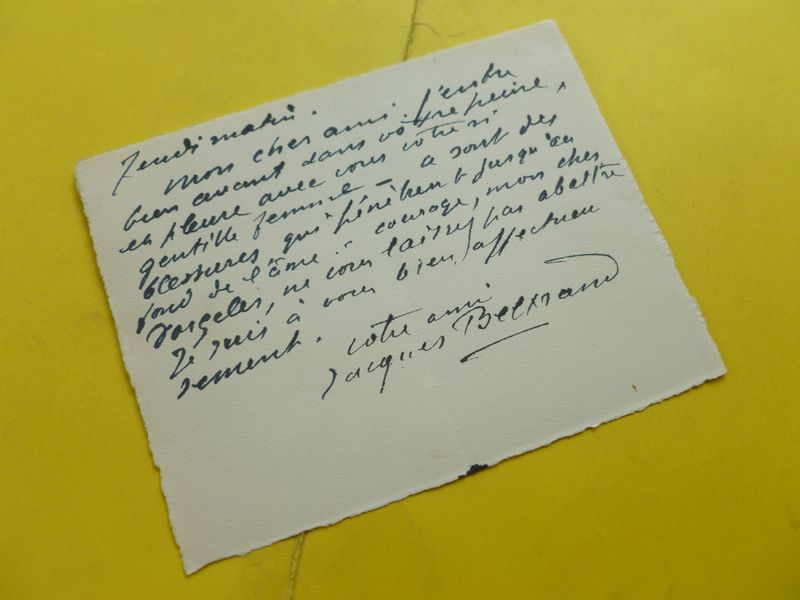 Jeudi matin.
Mon cher ami. J'entre
bien avant dans votre peine,
et pleure avec vous votre si
gentille femme – ce sont des
blessures qui pénètrent jusqu'au
fond de l'âme – courage, mon cher
Dorgelès, ne vous laissez pas abattre
Je suis à vous bien affectueu
sement.
votre ami
Jacques Beltrand